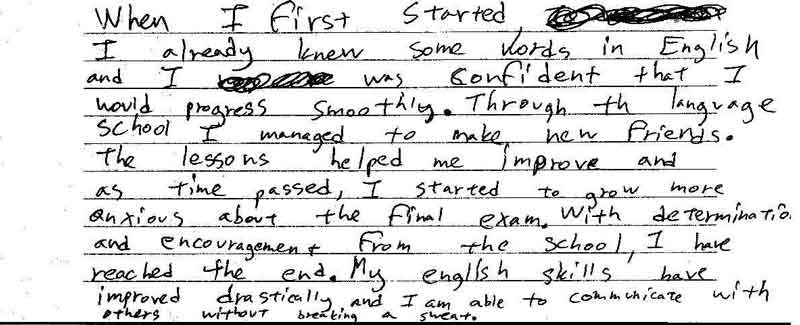 When I first started
I already knew some words in English
and I was confident that I
would progress smoothly. Through th language
school I managed to make new friends.
The lessons helped me improve and
as time passed, I started to grow more
anxious about the final exam. With determinatio
and encouragement from the school, I have
reached the end. My english skills have
improved drastically and I am able to communicate with
others without breaking a sweat.